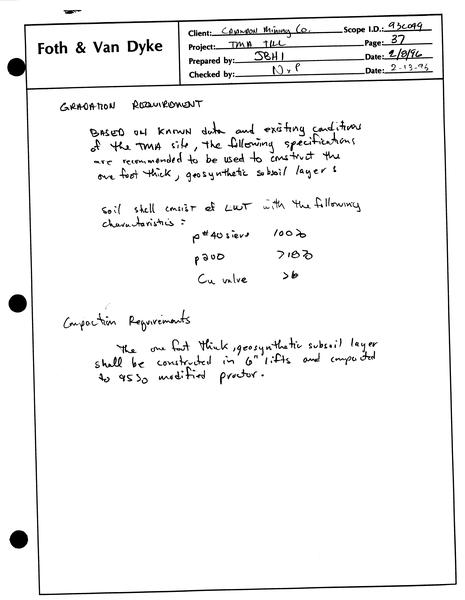 Foth & Van Dyke
Client: Crandon Mining Co. Scope I.D.: 93C049
Project: TMA TILL Page: 37
Prepared by: JBH1 Date: 2/8/96
Checked by: NVP Date: 2-13-96
GRADATION REQUIREMENT
BASED ON KNOWN data and existing conditions
of the TMA site, the following specifications
are recommended to be used to construct the
one foot thick, geosynthetic subsoil layer:
Soil shall consist of with the following
characteristics:
p#40 sieve 100%
p200 >18%
Cu value >6
Compaction Requirements
The one foot thick, geosynthetic subsoil layer
shall be constructed in 6" lifts and compacted
to 95% modified proctor.